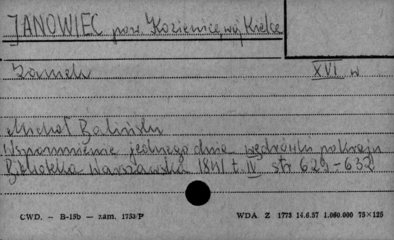 JANOWIEC pow. Kozienice, woj. Kielce
Zamek XVI w
Michał Baliński
Wspomnienie jednego dnia wędrówki po kraju
Biblioteka Warszawska 1841 t. IV str 629-632
CWD. — B-15b — zam. 1753/P WDA. Z 1773 14.6.57 1.000.000 75×125